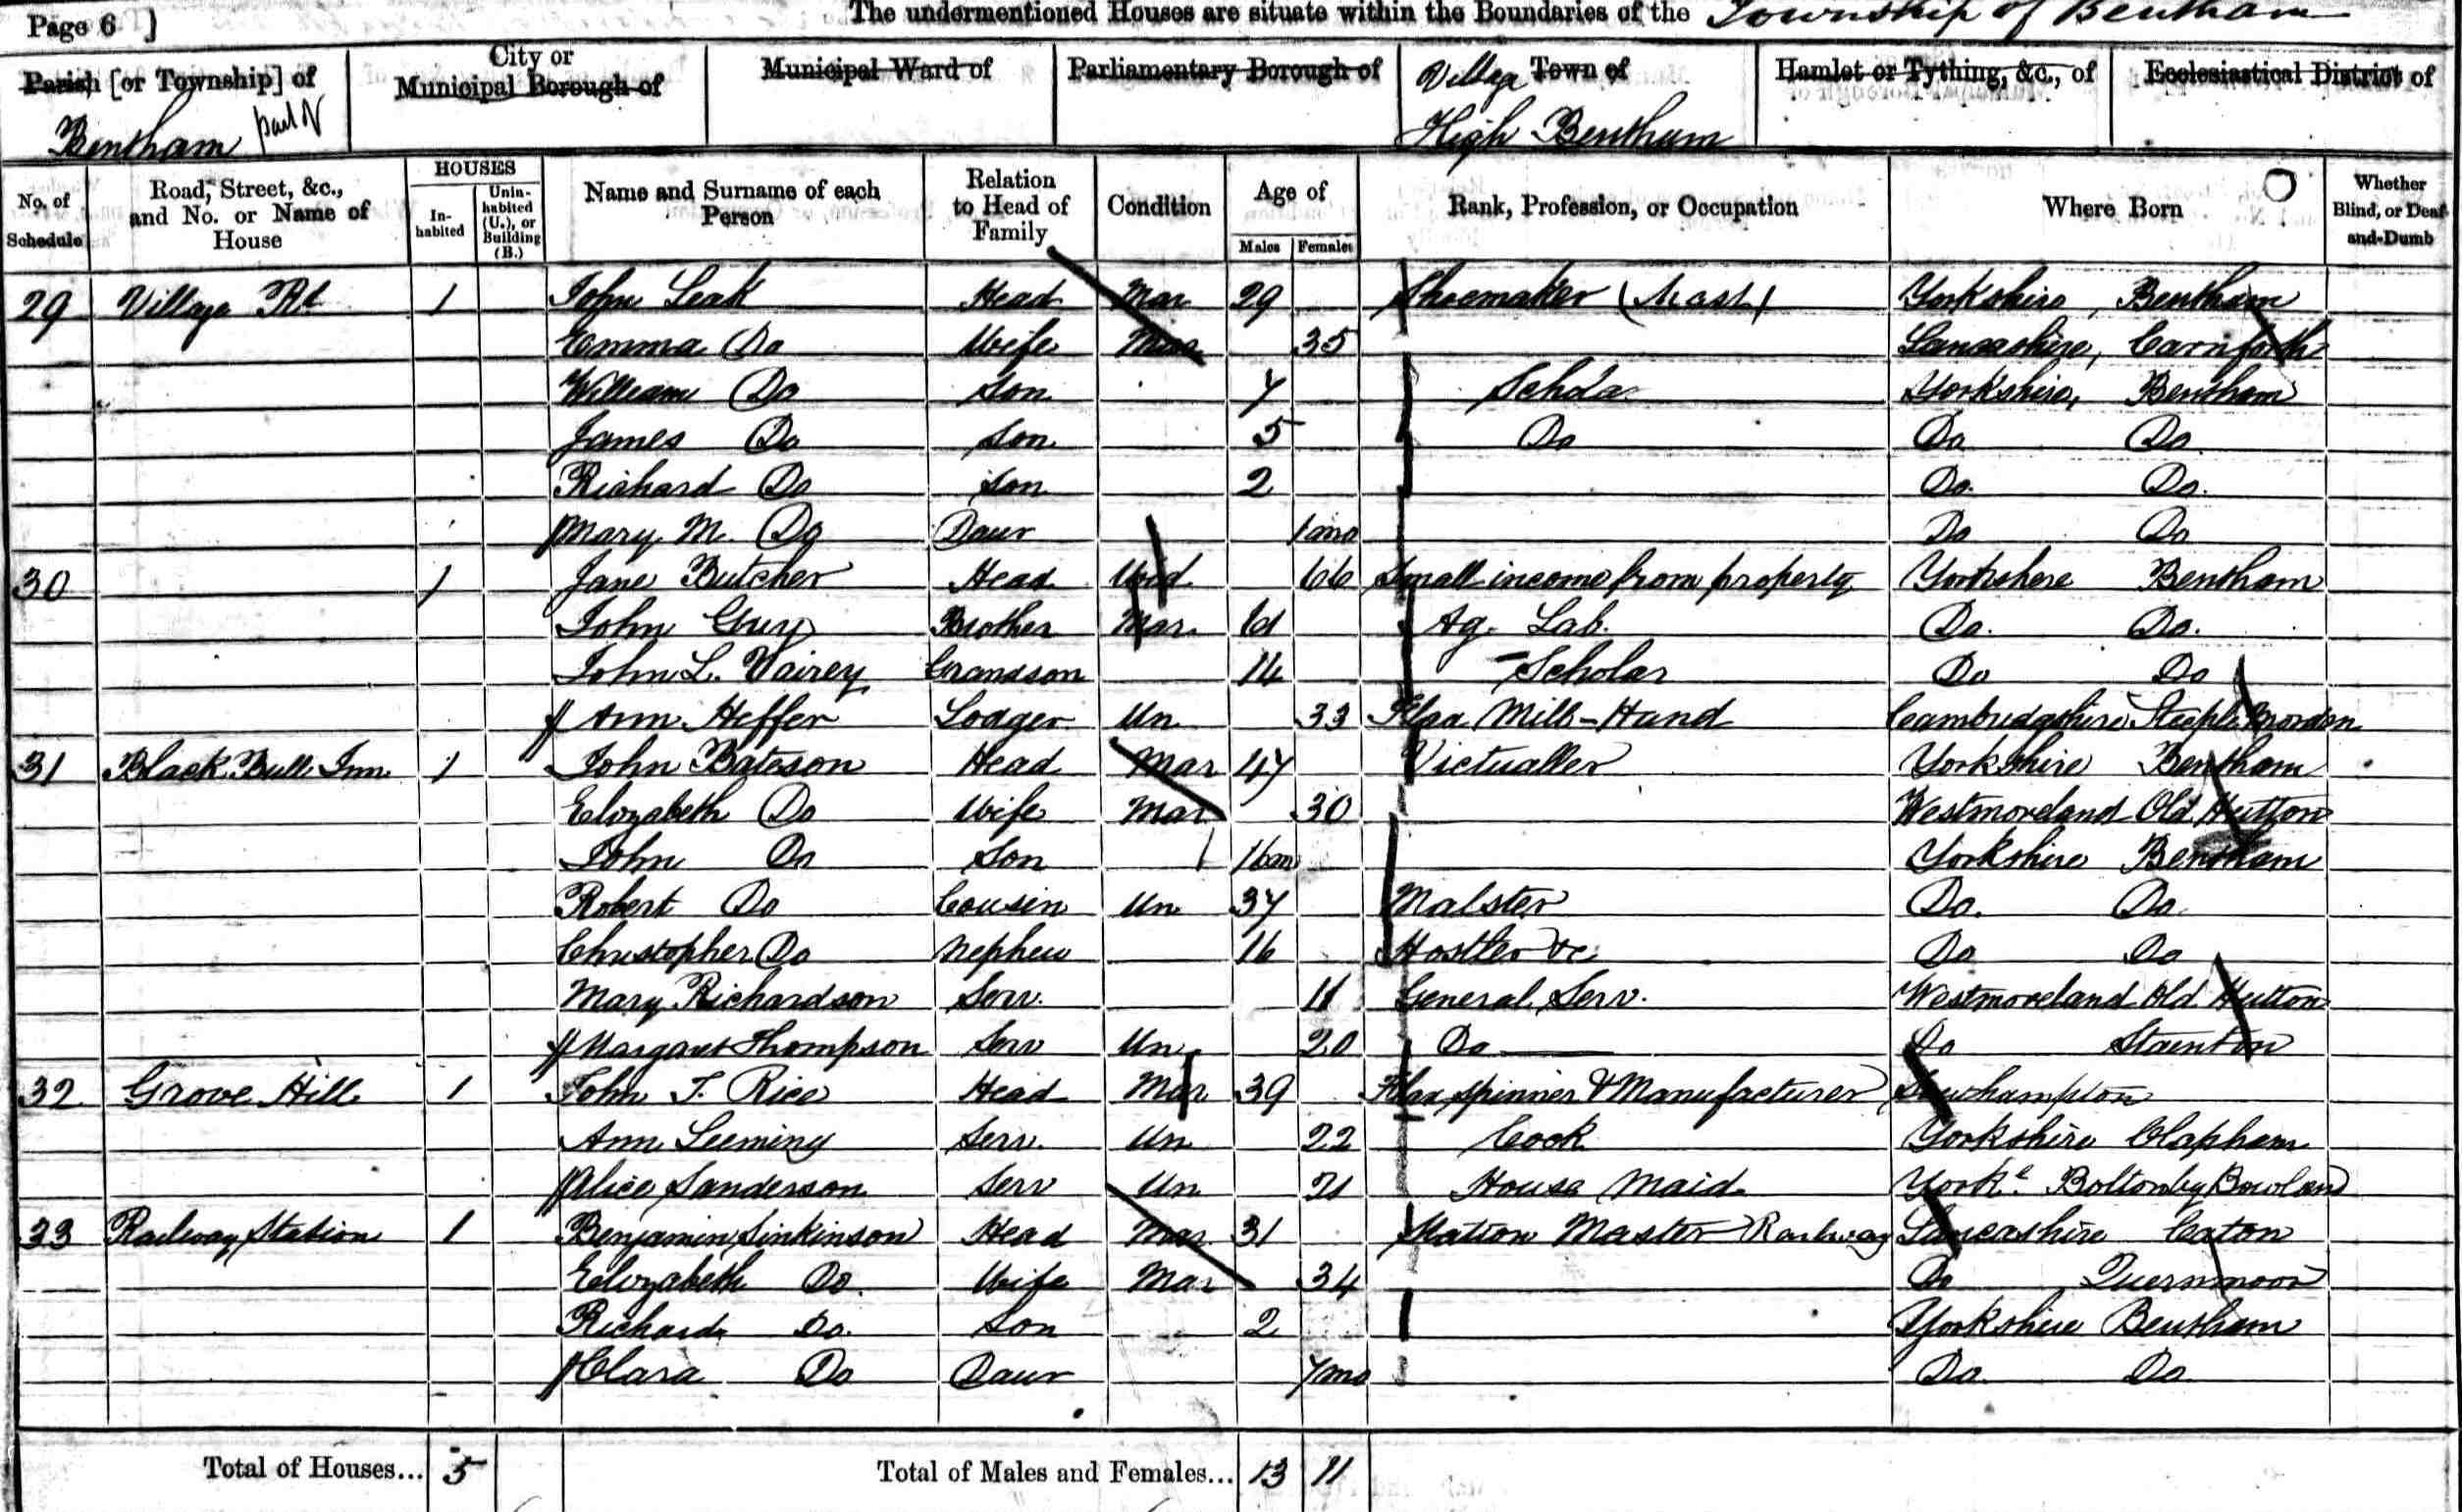 Page 6 ] The undermentioned Houses are situate within the Boundaries of the Township of Bentham
Parish [or Township] of City or Municipal Borough of Municipal Ward of Parliamentary Borough of Village Town of Hamlet or Tything, &c., of Ecclesiastical District of
Bentham part of High Bentham
No. of Schedule Road, Street, &c., and No. or Name of House HOUSES Inhabited Uninhabited (U.), or Building (B.) Name and Surname of each Person Relation to Head of Family Condition Age of Males Females Rank, Profession, or Occupation Where Born Whether Blind, or Deaf-and-Dumb
29 Village Rd 1 John Leak Head Mar 29 Shoemaker (Mast) Yorkshire, Bentham
Emma Do Wife Mar 35 Lancashire, Carnforth
William Do Son 7 Schola Yorkshire, Bentham
James Do Son 5 Do Do Do
Richard Do Son 2 Do. Do.
Mary M. Do Daur 1mo Do Do
30 1 Jane Butcher Head Wid 66 Small income from property Yorkshire Bentham
John Guy Brother Mar. 61 Ag. Lab. Do. Do.
John L. Vairey Grandson 14 Scholar Do Do
Ann Heffer Lodger Un 33 Flax Mill-Hand Cambridgshire Steeple Mordon
31 Black Bull Inn 1 John Bateson Head Mar 47 Victualler Yorkshire Bentham
Elizabeth Do Wife Mar 30 Westmoreland Old Hutton
John Do Son 16m Yorkshire Bentham
Robert Do Cousin Un 37 Malster Do. Do
Christopher Do Nephew 16 Hostler &c Do Do
Mary Richardson Serv. 11 General Serv. Westmoreland Old Hutton
Margaret Thompson Serv Un 20 Do Do Stainton
32 Grove Hill 1 John T. Rice Head Mar 39 Flax Spinner & Manufacturer Southampton
Ann Leeming Serv. Un 22 Cook Yorkshire Clapham
Alice Sanderson Serv Un 21 House Maid Yorke Bolton by Bowland
33 Railway Station 1 Benjamin Sinkinson Head Mar 31 Station Master Railway Lancashire Caton
Elizabeth Do. Wife Mar 34 Do Quernmoor
Richard Do. Son 2 Yorkshire Bentham
Clara Do Daur 7mo Do Do
Total of Houses... 5 Total of Males and Females... 13 11